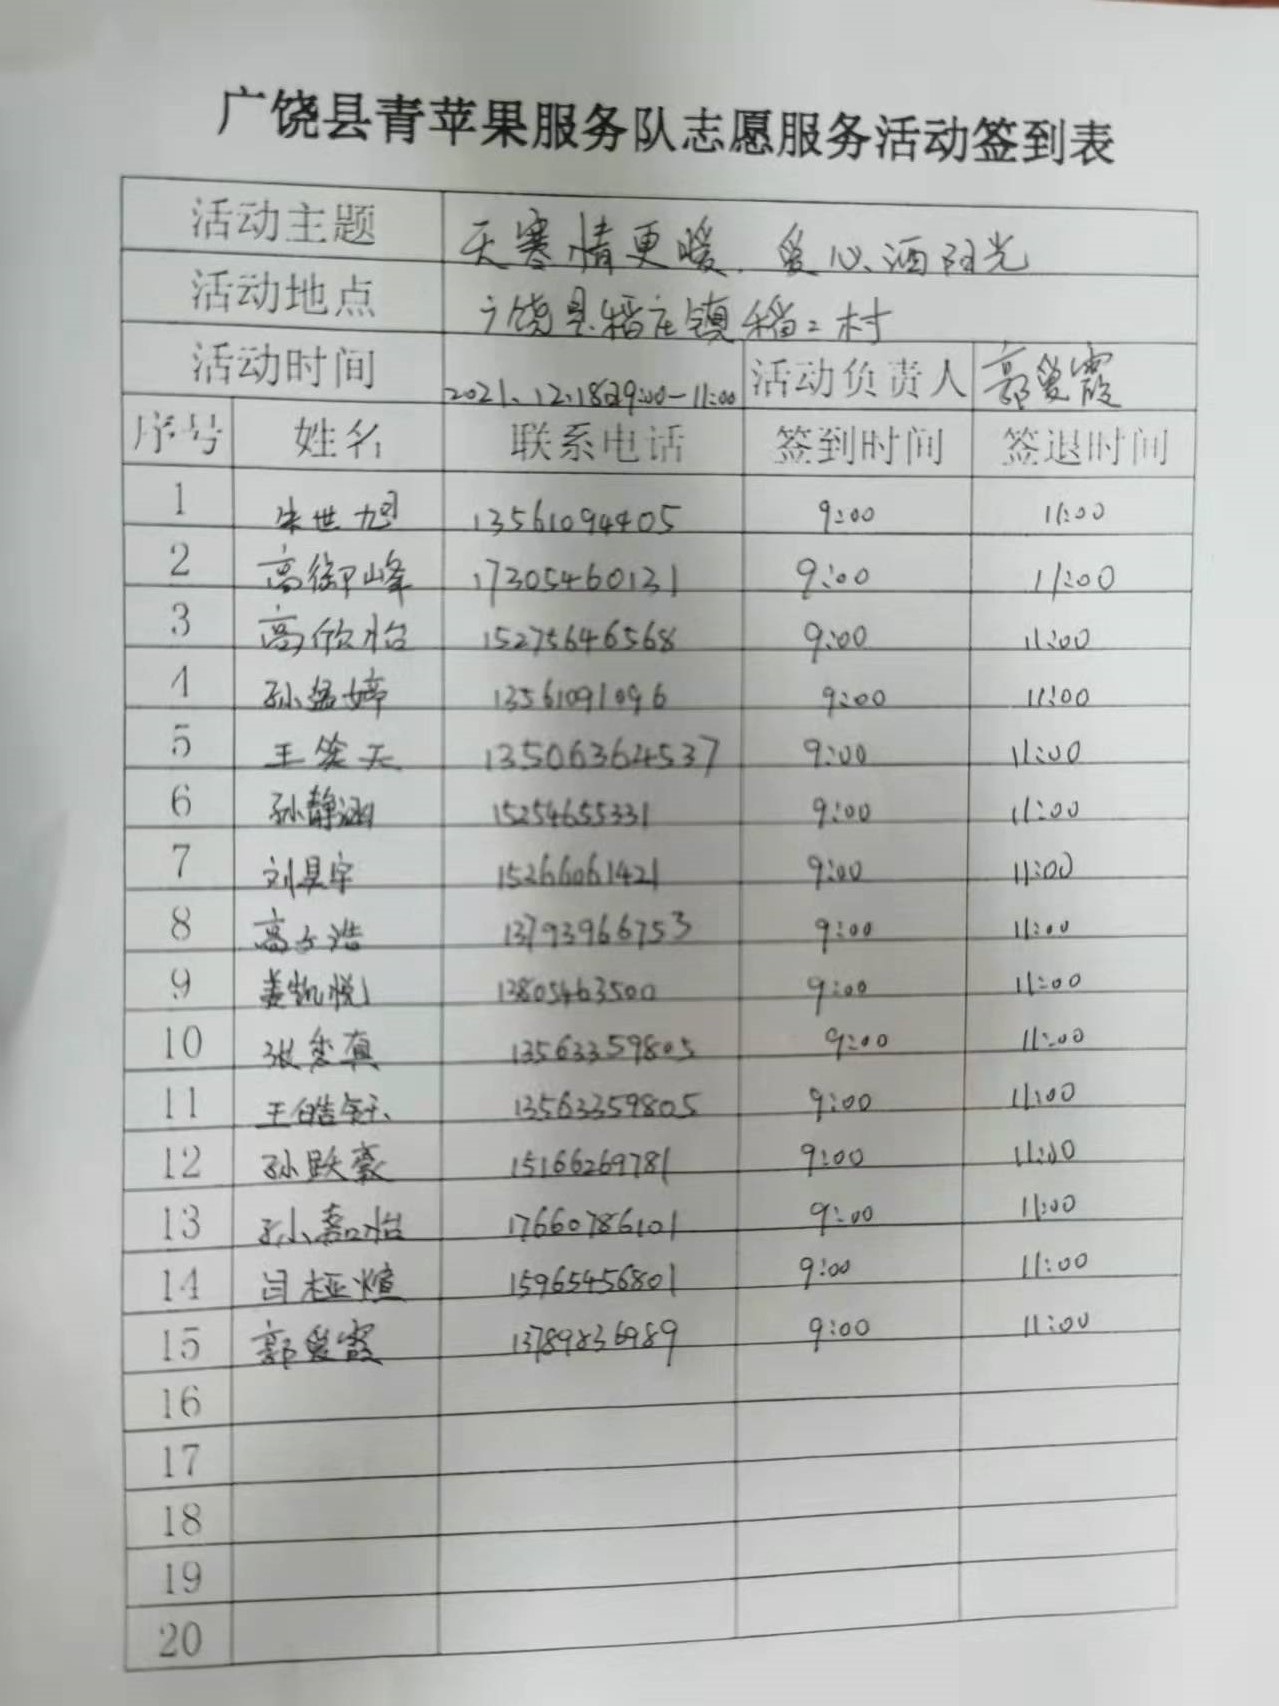 广饶县青苹果服务队志愿服务活动签到表
活动主题 天寒情更暖、爱心洒阳光
活动地点 广饶县稻庄镇稻二村
活动时间 2021.12.18日9:00-11:00 活动负责人 郭爱霞
序号 姓名 联系电话 签到时间 签退时间
1 朱世旭 13561094405 9:00 11:00
2 高御峰 17305460131 9:00 11:00
3 高欣怡 15275646568 9:00 11:00
4 孙孟婷 13561091096 9:00 11:00
5 王笑天 13506364537 9:00 11:00
6 孙静涵 15254655331 9:00 11:00
7 刘昊宇 15266061421 9:00 11:00
8 高子浩 13793966753 9:00 11:00
9 姜凯悦 13805463500 9:00 11:00
10 张秀真 13563359805 9:00 11:00
11 王皓钰 13563359805 9:00 11:00
12 孙跃豪 15166269781 9:00 11:00
13 孙嘉怡 17660786101 9:00 11:00
14 闫桠煊 15965456801 9:00 11:00
15 郭爱霞 13789836989 9:00 11:00
16
17
18
19
20